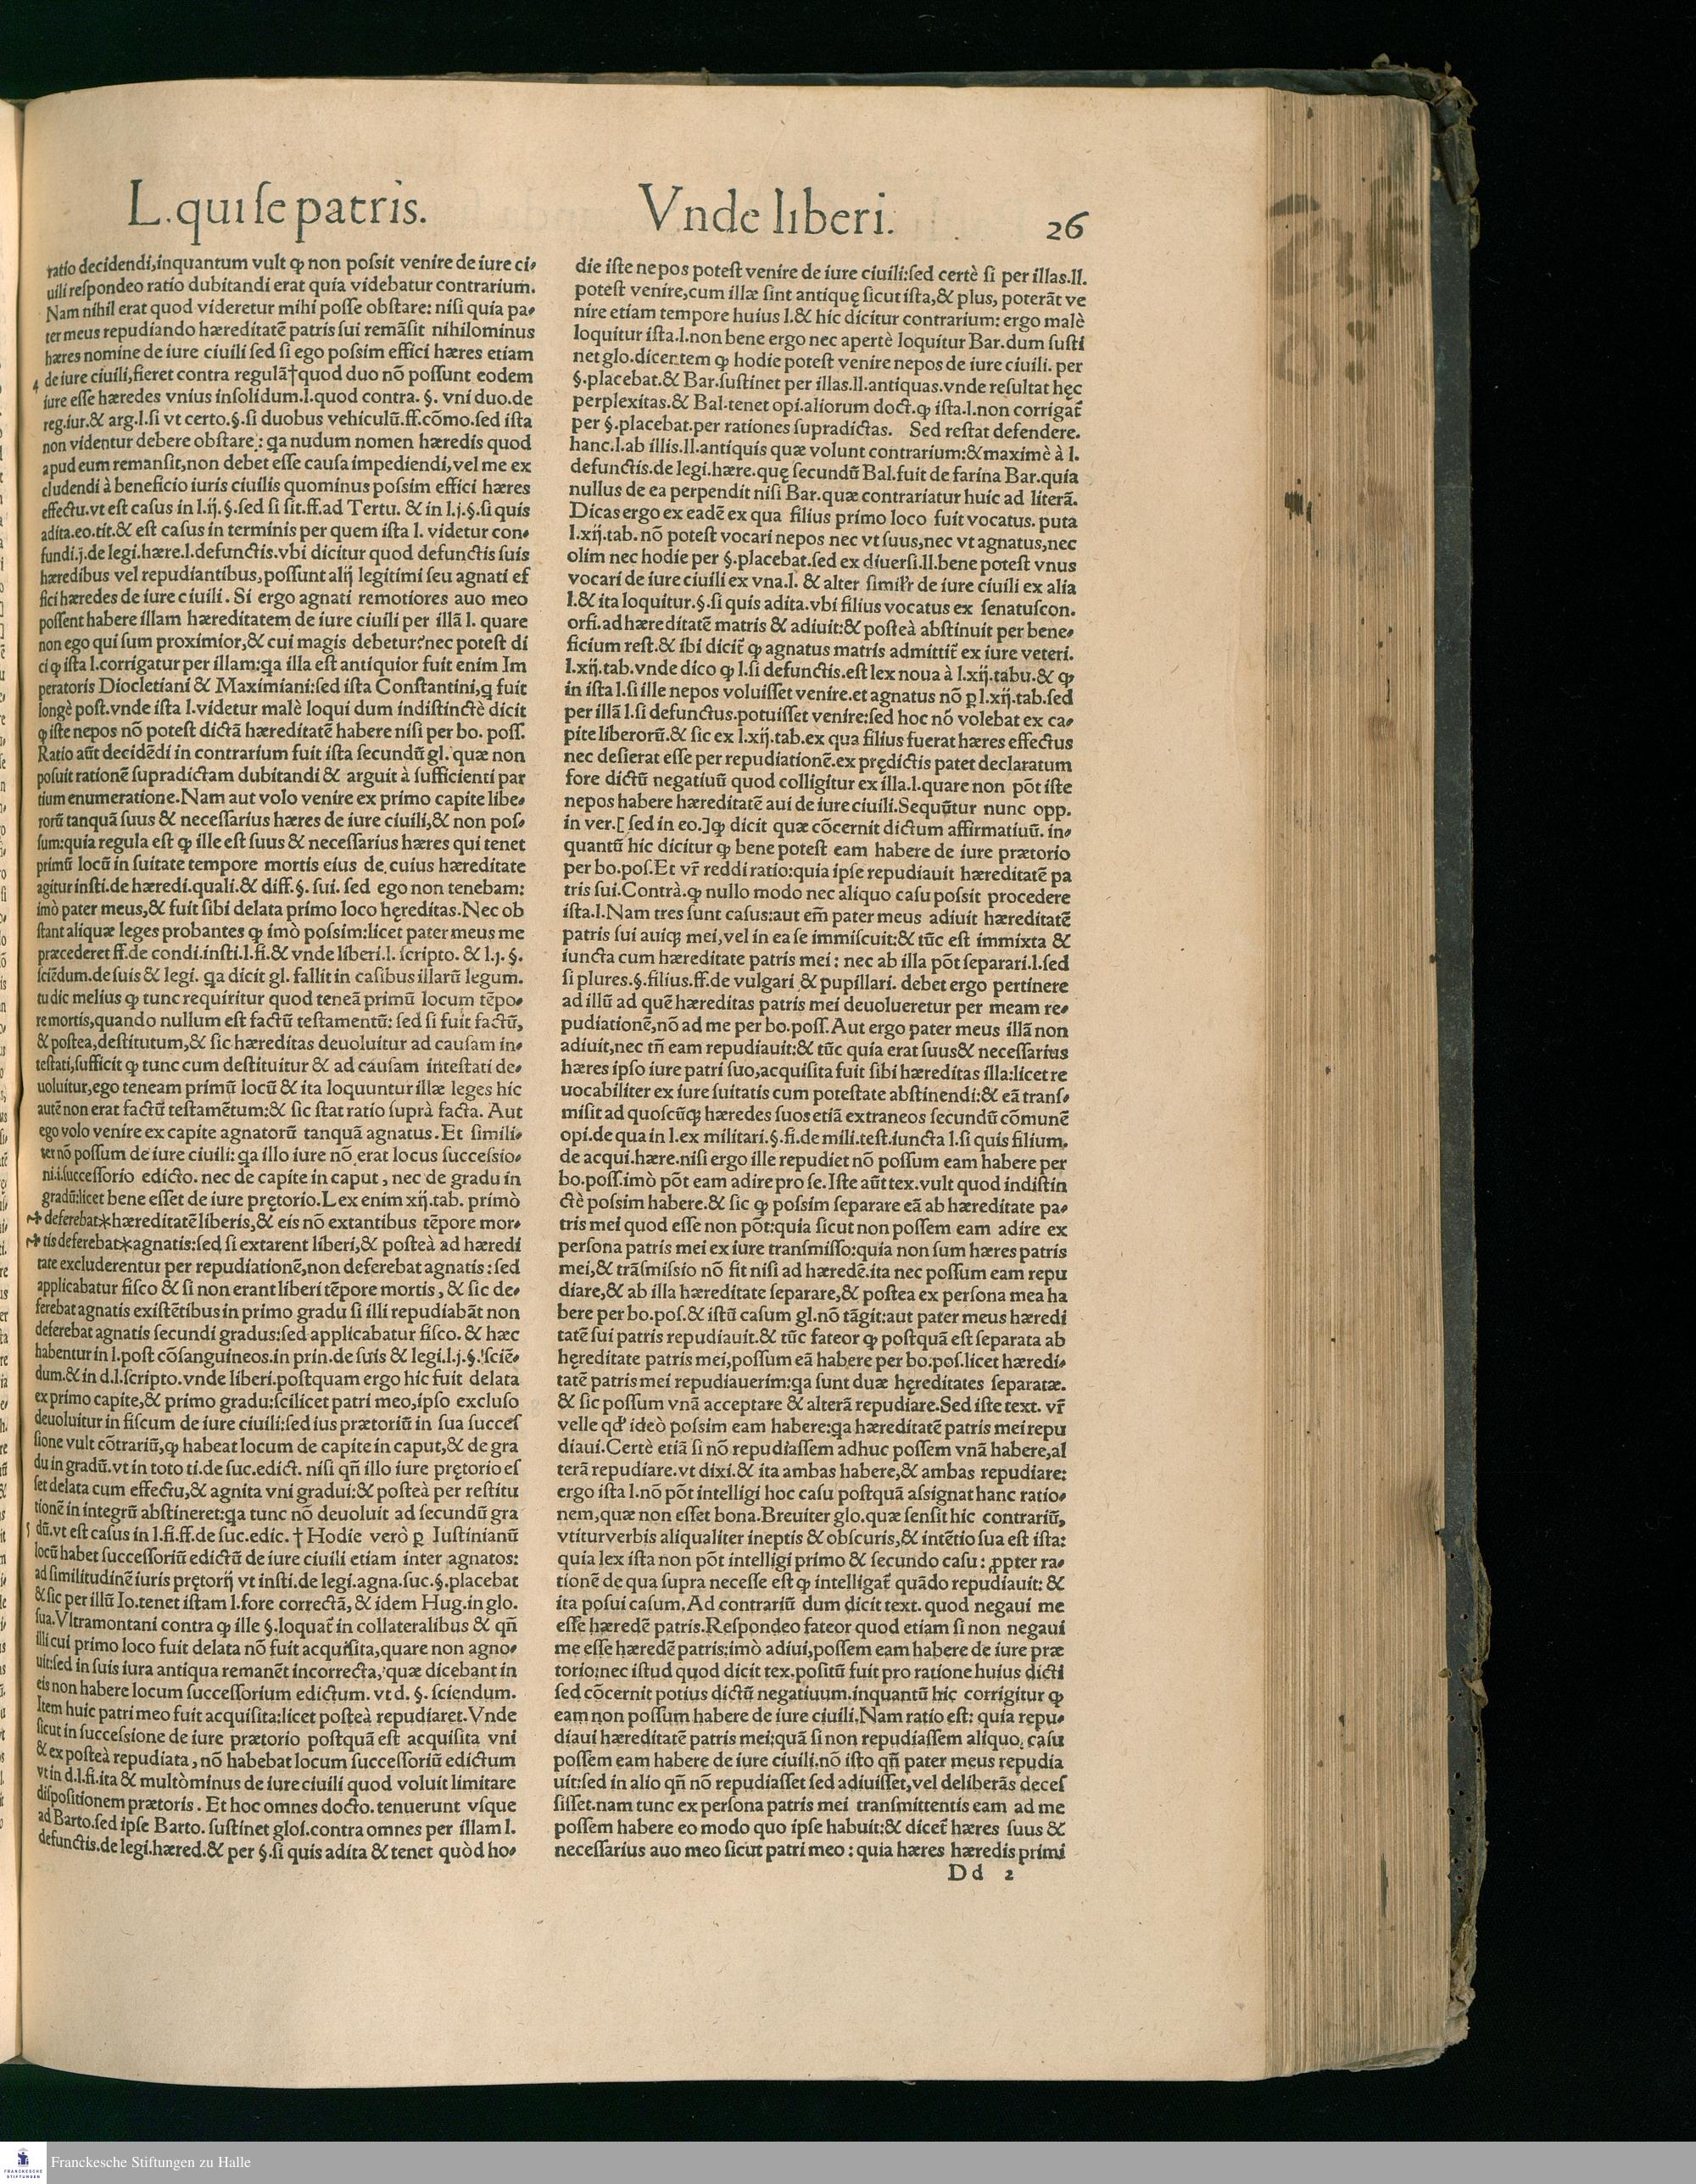 L.qui ſe patris.
Vnde liberi.
26
ratio decidendi,inquantum vult ꝙ non poſsit venire de iure ci⸗
uili reſpondeo ratio dubitandi erat quia videbatur contrarium.
Nam nihil erat quod videretur mihi poſſe obſtare: niſi quia pa⸗
ter meus repudiando hæreditatē patris ſui remāſit nihilominus
hæres nomine de iure ciuili ſed ſi ego poſsim effici hæres etiam
4 de iure ciuili,fieret contra regulā†quod duo nō poſſunt eodem
iure eſſe hæredes vnius inſolidum.l.quod contra. §. vni duo.de
reg.iur.& arg.l.ſi vt certo.§.ſi duobus vehiculū.ff.cōmo.ſed iſta
non videntur debere obſtare: qa nudum nomen hæredis quod
apud eum remanſit,non debet eſſe cauſa impediendi,vel me ex
cludendi à beneficio iuris ciuilis quominus poſsim effici hæres
effectu.vt eſt caſus in l.ij.§.ſed ſi ſit.ff.ad Tertu. & in l.j.§.ſi quis
adita.eo.tit.& eſt caſus in terminis per quem iſta l. videtur con⸗
fundi.j.de legi.hære.l.defunctis.vbi dicitur quod defunctis ſuis
hæredibus vel repudiantibus,poſſunt alij legitimi ſeu agnati ef
fici hæredes de iure ciuili. Si ergo agnati remotiores auo meo
poſſent habere illam hæreditatem de iure ciuili per illā l. quare
non ego qui ſum proximior,& cui magis debetur?nec poteſt di
ci ꝙ iſta l.corrigatur per illam:qa illa eſt antiquior fuit enim Im
peratoris Diocletiani & Maximiani:ſed iſta Conſtantini,q fuit
longè poſt.vnde iſta l.videtur malè loqui dum indiſtinctè dicit
ꝙ iſte nepos nō poteſt dictā hæreditatē habere niſi per bo. poſſ.
Ratio aūt decidēdi in contrarium fuit iſta ſecundū gl. quæ non
poſuit rationē ſupradictam dubitandi & arguit à ſufficienti par
tium enumeratione.Nam aut volo venire ex primo capite libe⸗
rorū tanquā ſuus & neceſſarius hæres de iure ciuili,& non poſ⸗
ſum:quia regula eſt ꝙ ille eſt ſuus & neceſſarius hæres qui tenet
primū locū in ſuitate tempore mortis eius de cuius hæreditate
agitur inſti.de hæredi.quali.& diff.§. ſui. ſed ego non tenebam:
imò pater meus,& fuit ſibi delata primo loco hęreditas.Nec ob
ſtant aliquæ leges probantes ꝙ imò poſsim:licet pater meus me
præcederet ff.de condi.inſti.l.fi.& vnde liberi.l. ſcripto. & l.j. §.
ſciēdum.de ſuis & legi. qa dicit gl. fallit in caſibus illarū legum.
tu dic melius ꝙ tunc requiritur quod teneā primū locum tēpo⸗
re mortis,quando nullum eſt factū teſtamentū: ſed ſi fuit factū,
& poſtea,deſtitutum,& ſic hæreditas deuoluitur ad cauſam in⸗
teſtati,ſufficit ꝙ tunc cum deſtituitur & ad cauſam inteſtati de⸗
uoluitur,ego teneam primū locū & ita loquuntur illæ leges hic
autē non erat factū teſtamētum:& ſic ſtat ratio ſuprà facta. Aut
ego volo venire ex capite agnatorū tanquā agnatus. Et ſimili⸗
ter nō poſſum de iure ciuili: qa illo iure nō erat locus ſucceſsio⸗
ni.i.ſucceſſorio edicto. nec de capite in caput, nec de gradu in
gradū:licet bene eſſet de iure prętorio.Lex enim xij.tab. primò
deferebat*hæreditatē liberis,& eis nō extantibus tēpore mor⸗
tis deferebat*agnatis:ſed ſi extarent liberi,& poſteà ad hæredi
tate excluderentur per repudiationē,non deferebat agnatis: ſed
applicabatur fiſco & ſi non erant liberi tēpore mortis, & ſic de⸗
ferebat agnatis exiſtētibus in primo gradu ſi illi repudiabāt non
deferebat agnatis ſecundi gradus:ſed applicabatur fiſco. & hæc
habentur in l.poſt cōſanguineos.in prin.de ſuis & legi.l.j.§. ſciē⸗
dum.& in d.l.ſcripto.vnde liberi.poſtquam ergo hic fuit delata
ex primo capite,& primo gradu:ſcilicet patri meo,ipſo excluſo
deuoluitur in fiſcum de iure ciuili:ſed ius prætoriū in ſua ſucceſ
ſione vult cōtrariū,ꝙ habeat locum de capite in caput,& de gra
du in gradū.vt in toto ti.de ſuc.edict. niſi qñ illo iure prętorio eſ
ſet delata cum effectu,& agnita vni gradui:& poſteà per reſtitu
tionē in integrū abſtineret:qa tunc nō deuoluit ad ſecundū gra
5 dū.vt eſt caſus in l.fi.ff.de ſuc.edic. † Hodie verò ꝑ Iuſtinianū
locū habet ſucceſſoriū edictū de iure ciuili etiam inter agnatos:
ad ſimilitudinē iuris prętorij vt inſti.de legi.agna.ſuc.§.placebat
& ſic per illū Io.tenet iſtam l.fore correctā, & idem Hug.in glo.
ſua.Vltramontani contra ꝙ ille §.loquat̄ in collateralibus & qñ
illi cui primo loco fuit delata nō fuit acquiſita,quare non agno⸗
uit:ſed in ſuis iura antiqua remanēt incorrecta, quæ dicebant in
eis non habere locum ſucceſſorium edictum. vt d. §. ſciendum.
Item huic patri meo fuit acquiſita:licet poſteà repudiaret.Vnde
ſicut in ſucceſsione de iure prætorio poſtquā eſt acquiſita vni
& ex poſteà repudiata, nō habebat locum ſucceſſoriū edictum
vt in d.l.fi.ita & multò minus de iure ciuili quod voluit limitare
diſpoſitionem prætoris. Et hoc omnes docto. tenuerunt vſque
ad Barto.ſed ipſe Barto. ſuſtinet gloſ.contra omnes per illam l.
defunctis.de legi.hæred.& per §.ſi quis adita & tenet quòd ho⸗
die iſte nepos poteſt venire de iure ciuili:ſed certè ſi per illas.ll.
poteſt venire,cum illæ ſint antiquę ſicut iſta,& plus, poterāt ve
nire etiam tempore huius l.& hic dicitur contrarium: ergo malè
loquitur iſta.l.non bene ergo nec apertè loquitur Bar.dum ſuſti
net glo.dicentem ꝙ hodie poteſt venire nepos de iure ciuili. per
§.placebat.& Bar.ſuſtinet per illas.ll.antiquas.vnde reſultat hęc
perplexitas.& Bal.tenet opi.aliorum doct.ꝙ iſta.l.non corrigat̄
per §.placebat.per rationes ſupradictas. Sed reſtat defendere.
hanc.l.ab illis.ll.antiquis quæ volunt contrarium:& maximè à l.
defunctis.de legi.hære.quę ſecundū Bal.fuit de farina Bar.quia
nullus de ea perpendit niſi Bar.quæ contrariatur huic ad literā.
Dicas ergo ex eadē ex qua filius primo loco fuit vocatus. puta
l.xij.tab. nō poteſt vocari nepos nec vt ſuus,nec vt agnatus,nec
olim nec hodie per §.placebat.ſed ex diuerſi.ll.bene poteſt vnus
vocari de iure ciuili ex vna.l. & alter ſimil̄r de iure ciuili ex alia
l.& ita loquitur.§.ſi quis adita.vbi filius vocatus ex ſenatuſcon.
orfi.ad hæreditatē matris & adiuit:& poſteà abſtinuit per bene⸗
ficium reſt.& ibi dicit̄ ꝙ agnatus matris admittit̄ ex iure veteri.
l.xij.tab.vnde dico ꝙ l.ſi defunctis.eſt lex noua à l.xij.tabu.& ꝙ
in iſta l.ſi ille nepos voluiſſet venire.et agnatus nō ꝑ l.xij.tab.ſed
per illā l.ſi defunctus.potuiſſet venire:ſed hoc nō volebat ex ca⸗
pite liberorū.& ſic ex l.xij.tab.ex qua filius fuerat hæres effectus
nec deſierat eſſe per repudiationē.ex prędictis patet declaratum
fore dictū negatiuū quod colligitur ex illa.l.quare non pōt iſte
nepos habere hæreditatē aui de iure ciuili.Sequūtur nunc opp.
in ver.[ ſed in eo.]ꝙ dicit quæ cōcernit dictum affirmatiuū. in⸗
quantū hic dicitur ꝙ bene poteſt eam habere de iure prætorio
per bo.poſ.Et vr̄ reddi ratio:quia ipſe repudiauit hæreditatē pa
tris ſui.Contrà.ꝙ nullo modo nec aliquo caſu poſsit procedere
iſta.l.Nam tres ſunt caſus:aut em̄ pater meus adiuit hæreditatē
patris ſui auiqꝫ mei,vel in ea ſe immiſcuit:& tūc eſt immixta &
iuncta cum hæreditate patris mei: nec ab illa pōt ſeparari.l.ſed
ſi plures.§.filius.ff.de vulgari & pupillari. debet ergo pertinere
ad illū ad quē hæreditas patris mei deuolueretur per meam re⸗
pudiationē,nō ad me per bo.poſſ.Aut ergo pater meus illā non
adiuit,nec tñ eam repudiauit:& tūc quia erat ſuus& neceſſarius
hæres ipſo iure patri ſuo,acquiſita fuit ſibi hæreditas illa:licet re
uocabiliter ex iure ſuitatis cum poteſtate abſtinendi:& eā tranſ⸗
miſit ad quoſcūqꝫ hæredes ſuos etiā extraneos ſecundū cōmunē
opi.de qua in l.ex militari.§.fi.de mili.teſt.iuncta l.ſi quis filium.
de acqui.hære.niſi ergo ille repudiet nō poſſum eam habere per
bo.poſſ.imò pōt eam adire pro ſe.Iſte aūt tex.vult quod indiſtin
ctè poſsim habere.& ſic ꝙ poſsim ſeparare eā ab hæreditate pa⸗
tris mei quod eſſe non pōt:quia ſicut non poſſem eam adire ex
perſona patris mei ex iure tranſmiſſo:quia non ſum hæres patris
mei,& trāſmiſsio nō fit niſi ad hæredē.ita nec poſſum eam repu
diare,& ab illa hæreditate ſeparare,& poſtea ex perſona mea ha
bere per bo.poſ.& iſtū caſum gl.nō tāgit:aut pater meus hæredi
tatē ſui patris repudiauit.& tūc fateor ꝙ poſtquā eſt ſeparata ab
hęreditate patris mei,poſſum eā habere per bo.poſ.licet hæredi⸗
tatē patris mei repudiauerim:qa ſunt duæ hęreditates ſeparatæ.
& ſic poſſum vnā acceptare & alterā repudiare.Sed iſte text. vr̄
velle qd' ideò poſsim eam habere:qa hæreditatē patris mei repu
diaui.Certè etiā ſi nō repudiaſſem adhuc poſſem vnā habere,al
terā repudiare.vt dixi.& ita ambas habere,& ambas repudiare:
ergo iſta l.nō pōt intelligi hoc caſu poſtquā aſsignat hanc ratio⸗
nem,quæ non eſſet bona.Breuiter glo.quæ ſenſit hic contrariū,
vtitur verbis aliqualiter ineptis & obſcuris,& intētio ſua eſt iſta:
quia lex iſta non pōt intelligi primo & ſecundo caſu: ꝓpter ra⸗
tionē de qua ſupra neceſſe eſt ꝙ intelligat̄ quādo repudiauit: &
ita poſui caſum.Ad contrariū dum dicit text. quod negaui me
eſſe hæredē patris.Reſpondeo fateor quod etiam ſi non negaui
me eſſe hæredē patris:imò adiui,poſſem eam habere de iure præ
torio:nec iſtud quod dicit tex.poſitū fuit pro ratione huius dicti
ſed cōcernit potius dictū negatiuum.inquantū hic corrigitur ꝙ
eam non poſſum habere de iure ciuili.Nam ratio eſt: quia repu⸗
diaui hæreditatē patris mei:quā ſi non repudiaſſem aliquo caſu
poſſem eam habere de iure ciuili.nō iſto qñ pater meus repudia
uit:ſed in alio qñ nō repudiaſſet ſed adiuiſſet,vel deliberās deceſ
ſiſſet.nam tunc ex perſona patris mei tranſmittentis eam ad me
poſſem habere eo modo quo ipſe habuit:& dicet̄ hæres ſuus &
neceſſarius auo meo ſicut patri meo: quia hæres hæredis primi
Dd 2
Franckesche Stiftungen zu Halle
FRANCKESCHE STIFTUNGEN